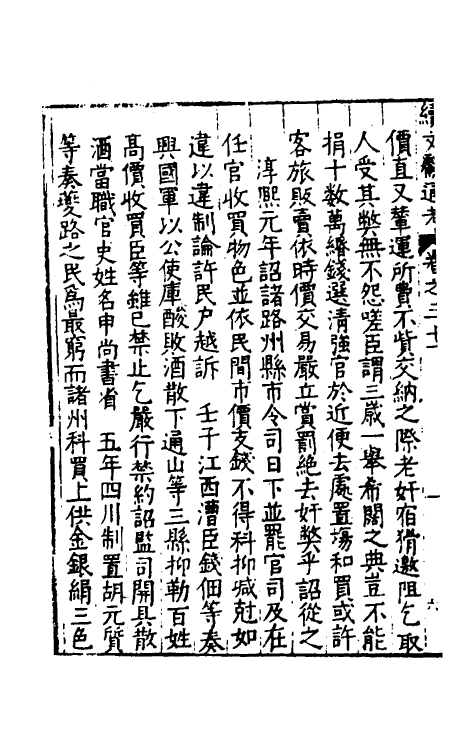 續文獻通考 卷之三十 六
價直又輦運所費不貲交納之際老奸宿猾邀阻乞取
人受其弊無不怨嗟臣謂三歲一舉希闊之典豈不能
捐十數萬緡錢選清強官於近便去處置場和買或許
客旅販賣依時價交易嚴立賞罰絶去奸弊乎詔從之
淳熙元年詔諸路州縣市令司日下並罷官司及在
任官收買物色並依民間市價支錢不得科抑減尅如
違以違制論許民戶越訴 壬子江西漕臣錢佃等奏
興國軍以公使庫酸敗酒散下通山等三縣抑勒百姓
高價收買臣等雖已禁止乞嚴行禁約詔監司開具散
酒當職官吏姓名申尚書省 五年四川制置胡元質
等奏夔路之民爲最窮而諸州科買上供金銀絹三色